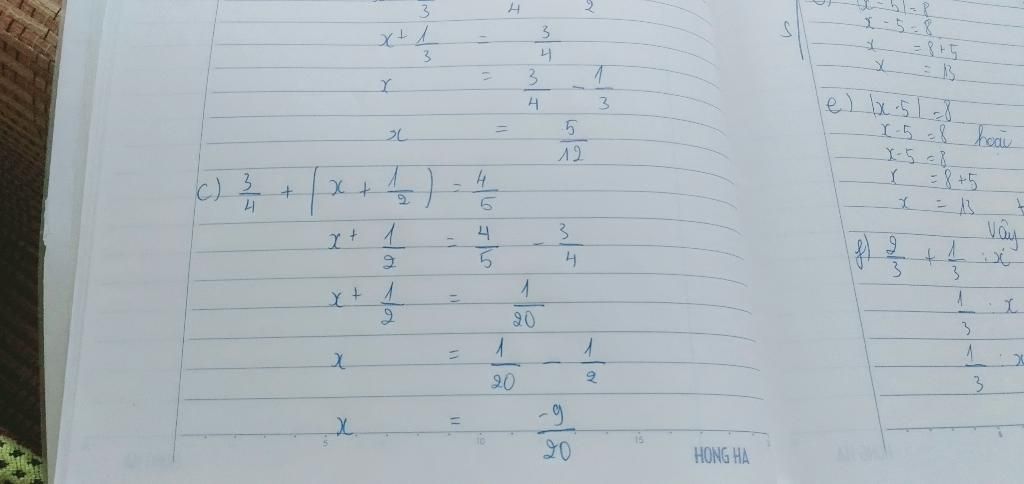 3 4 2
x + 1/3 = 3/4
x = 3/4 - 1/3
x = 5/12
c) 3/4 + (x + 1/2) = 4/5
x + 1/2 = 4/5 - 3/4
x + 1/2 = 1/20
x = 1/20 - 1/2
x = -9/20
5 10 15
HONG HA
|x - 5| = 8
x - 5 = 8
x = 8 + 5
x = 13
e) |x - 5| = 8
x - 5 = 8 hoặc
x - 5 = 8
x = 8 + 5
x = 13
Vậy
f) 2/3 + 1/3 : x
1/3 : x
1/3 : x